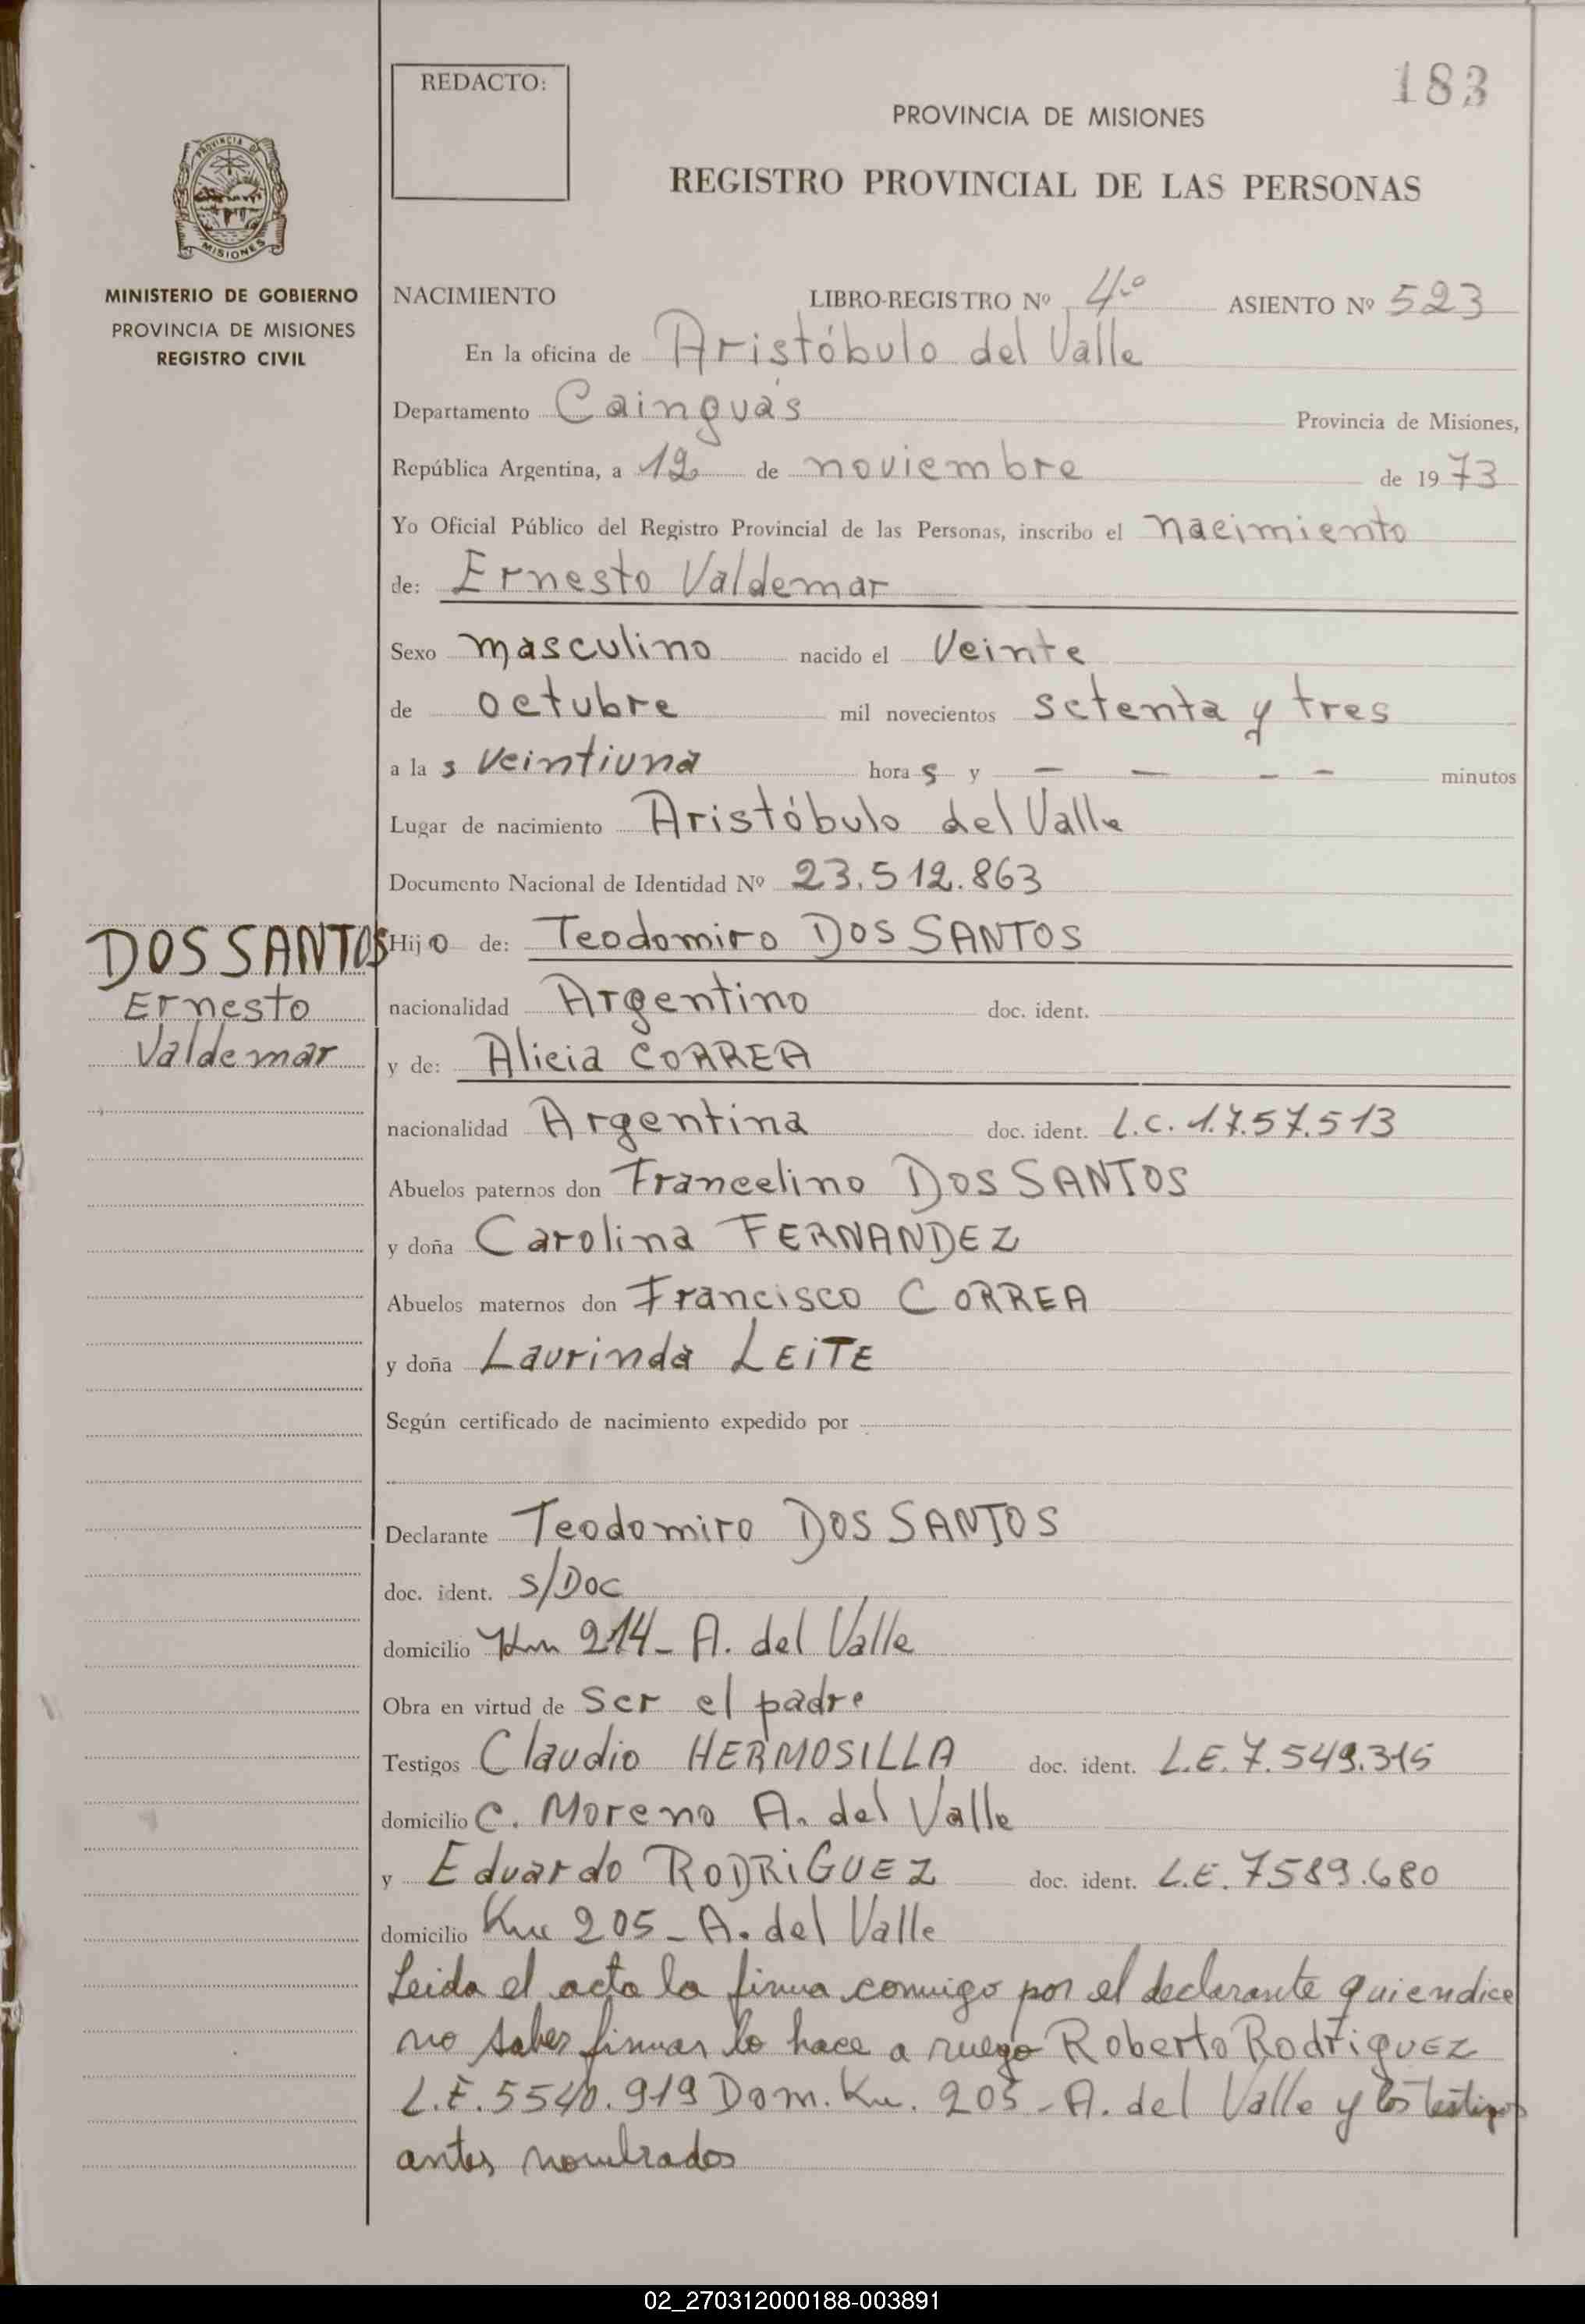 183
REDACTO:
PROVINCIA DE MISIONES
REGISTRO PROVINCIAL DE LAS PERSONAS
PROVINCIA DE
MISIONES
MINISTERIO DE GOBIERNO
PROVINCIA DE MISIONES
REGISTRO CIVIL
NACIMIENTO LIBRO-REGISTRO Nº 4º ASIENTO Nº 523
En la oficina de Aristóbulo del Valle
Departamento Cainguás Provincia de Misiones,
República Argentina, a 12 de noviembre de 1973
Yo Oficial Público del Registro Provincial de las Personas, inscribo el nacimiento
de: Ernesto Valdemar
Sexo masculino nacido el Veinte
de octubre mil novecientos setenta y tres
a la s veintiuna hora s y — — — — minutos
Lugar de nacimiento Aristóbulo del Valle
Documento Nacional de Identidad Nº 23.512.863
DOS SANTOS
Ernesto
Valdemar
Hijo de: Teodomiro DOS SANTOS
nacionalidad Argentino doc. ident.
y de: Alicia CORREA
nacionalidad Argentina doc. ident. L.C. 1.757.513
Abuelos paternos don Francelino DOS SANTOS
y doña Carolina FERNANDEZ
Abuelos maternos don Francisco CORREA
y doña Laurinda LEiTE
Según certificado de nacimiento expedido por
Declarante Teodomiro DOS SANTOS
doc. ident. S/DOC
domicilio Km 214- A. del Valle
Obra en virtud de ser el padre
Testigos Claudio HERMOSILLA doc. ident. L.E. 7.549.315
domicilio C. Moreno A. del Valle
y Eduardo RODRiGUEZ doc. ident. L.E. 7589.680
domicilio Km 205- A. del Valle
Leida el acta la firma conmigo por el declarante quien dice
no saber firmar lo hace a ruego Roberto RodriguEZ
L.E. 5540.919 Dom. Km. 205- A. del Valle y los testigos
antes nombrados
02_270312000188-003891